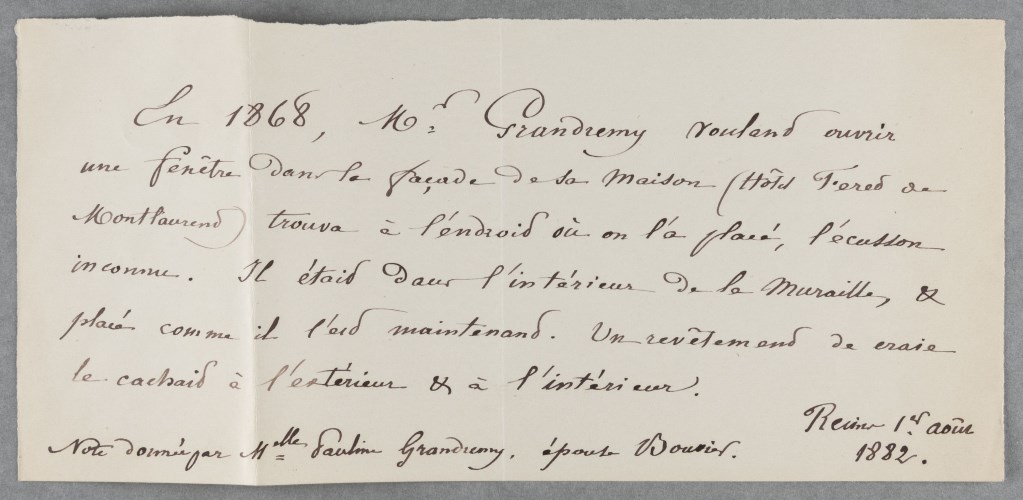 En 1868, Mr. Grandremy voulant ouvrir
une fenêtre dans la façade de sa maison (Hôtel Féret de
Montlaurent) trouva à l'endroit où on l'a placé, l'écusson
inconnu. Il était dans l'intérieur de la muraille, &
placé comme il l'est maintenant. Un revêtement de craie
le cachait à l'extérieur & à l'intérieur.
Reims 1er août
1882.
Note donnée par Mlle Pauline Grandremy, épouse Bouvier.